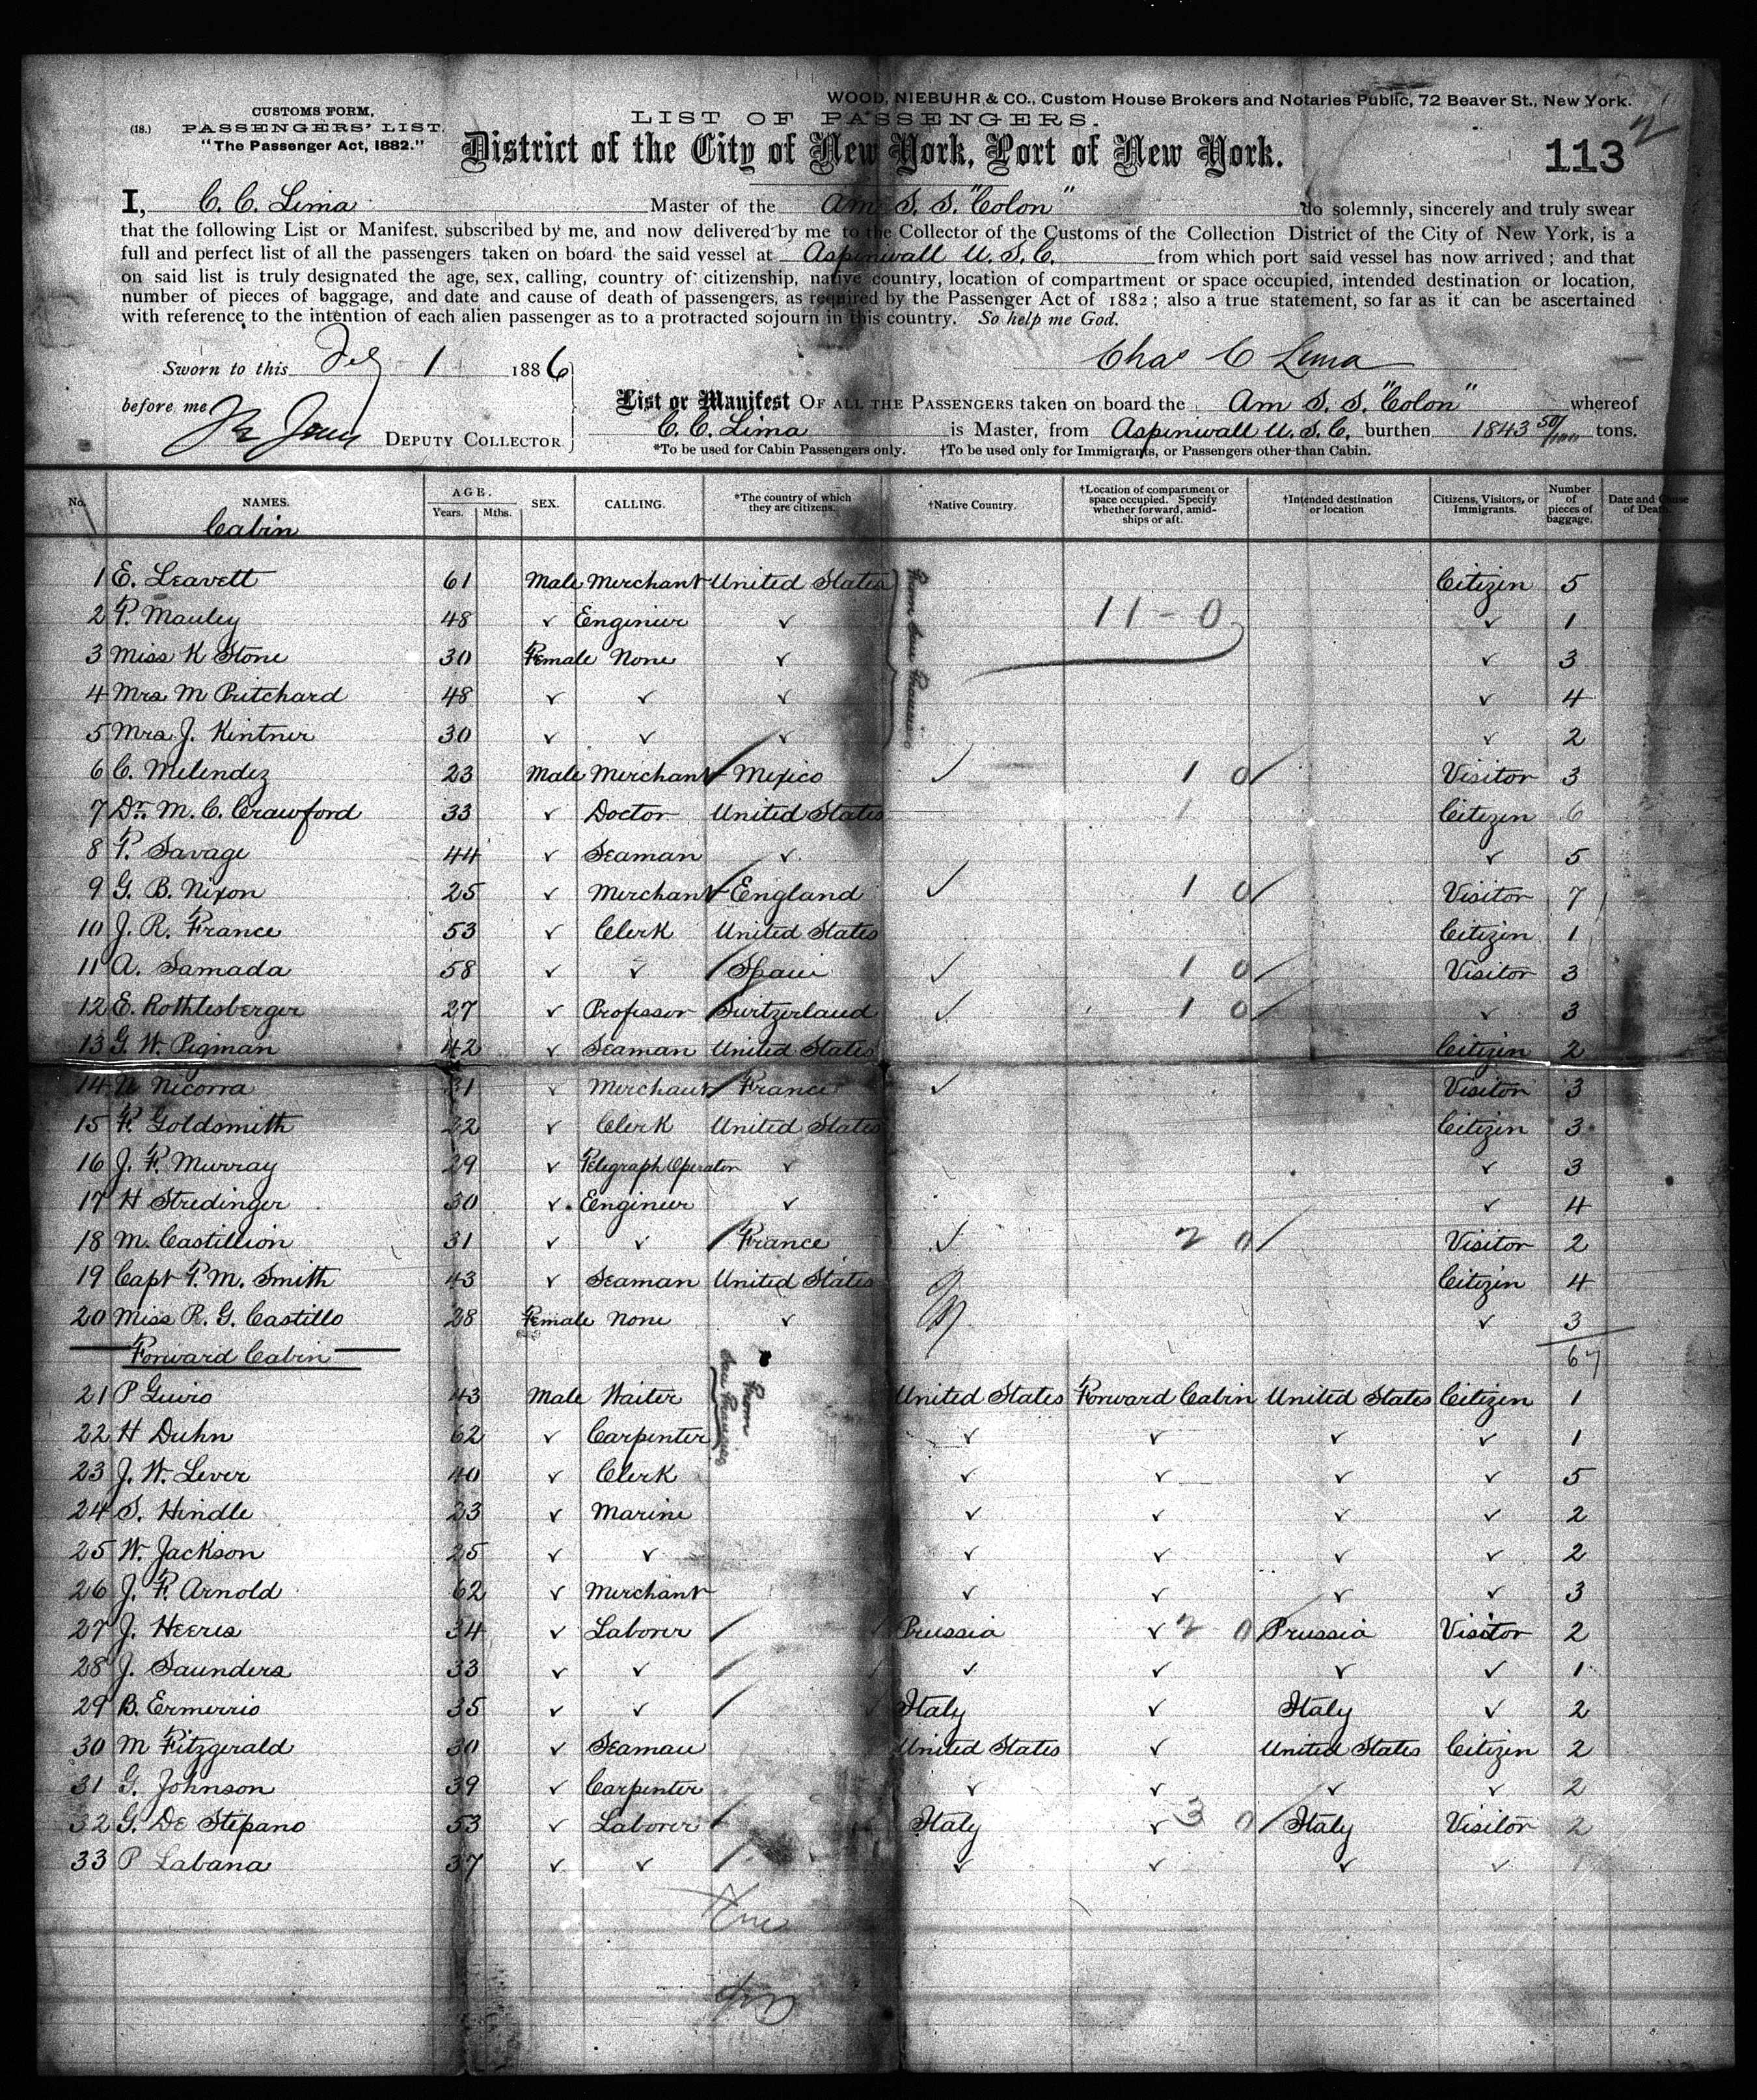 WOOD, NIEBUHR & CO., Custom House Brokers and Notaries Public, 72 Beaver St., New York.
CUSTOMS FORM,
(18.) PASSENGERS' LIST,
"The Passenger Act, 1882."
LIST OF PASSENGERS.
2
District of the City of New York, Port of New York.
113
I, C. C. Lima Master of the Am S. S. "Colon" do solemnly, sincerely and truly swear
that the following List or Manifest, subscribed by me, and now delivered by me to the Collector of the Customs of the Collection District of the City of New York, is a
full and perfect list of all the passengers taken on board the said vessel at Aspinwall U. S. C. from which port said vessel has now arrived; and that
on said list is truly designated the age, sex, calling, country of citizenship, native country, location of compartment or space occupied, intended destination or location,
number of pieces of baggage, and date and cause of death of passengers, as required by the Passenger Act of 1882; also a true statement, so far as it can be ascertained
with reference to the intention of each alien passenger as to a protracted sojourn in this country. So help me God.
Chas C Lima
Sworn to this Feb 1 1886
before me DEPUTY COLLECTOR
List or Manifest OF ALL THE PASSENGERS taken on board the Am S. S. "Colon" whereof
C. C. Lima is Master, from Aspinwall U. S. C. burthen 1843 50/100 tons.
*To be used for Cabin Passengers only. †To be used only for Immigrants, or Passengers other than Cabin.
No. NAMES. AGE. Years. Mths. SEX. CALLING. *The country of which they are citizens. †Native Country. †Location of compartment or space occupied. Specify whether forward, amidships or aft. †Intended destination or location Citizens, Visitors, or Immigrants. Number of pieces of baggage. Date and Cause of Death.
Cabin
1 E. Leavett 61 Male Merchant United States Citizen 5
2 P. Mauley 48 ✓ Engineer ✓ 11-0 ✓ 1
3 Miss K Stone 30 Female None ✓ ✓ 3
4 Mrs M Pritchard 48 ✓ ✓ ✓ ✓ 4
5 Mrs J. Kintner 30 ✓ ✓ ✓ ✓ 2
6 C. Melendez 23 Male Merchant Mexico ✓ 1 0 Visitor 3
7 Dr. M. C. Crawford 33 ✓ Doctor United States 1 Citizen 6
8 P. Savage 44 ✓ Seaman ✓ ✓ 5
9 G. B. Nixon 25 ✓ Merchant England ✓ 1 0 Visitor 7
10 J. R. France 53 ✓ Clerk United States Citizen 1
11 A. Samada 58 ✓ ✓ Spain ✓ 1 0 Visitor 3
12 E. Rothlesberger 27 ✓ Professor Switzerland ✓ 1 0 ✓ 3
13 G. W. Pigman 42 ✓ Seaman United States Citizen 2
14 Nicorra 31 ✓ Merchant France ✓ Visitor 3
15 F. Goldsmith 22 ✓ Clerk United States Citizen 3
16 J. F. Murray 29 ✓ Telegraph Operator ✓ ✓ 3
17 H Stredinger 30 ✓ Engineer ✓ ✓ 4
18 M. Castillion 31 ✓ ✓ France ✓ 2 0 Visitor 2
19 Capt P. M. Smith 43 ✓ Seaman United States Citizen 4
20 Miss R. G. Castillo 28 Female None ✓ ✓ 3
Forward Cabin 67
From San Francisco
21 P Guiro 43 Male Waiter United States Forward Cabin United States Citizen 1
22 H Duhn 62 ✓ Carpenter ✓ ✓ ✓ ✓ 1
23 J. W. Lever 40 ✓ Clerk ✓ ✓ ✓ ✓ 5
24 S. Hindle 23 ✓ Marine ✓ ✓ ✓ ✓ 2
25 W. Jackson 25 ✓ ✓ ✓ ✓ ✓ ✓ 2
26 J. F. Arnold 62 ✓ Merchant ✓ ✓ ✓ ✓ 3
27 J. Heeres 34 ✓ Laborer Prussia ✓ 2 0 Prussia Visitor 2
28 J. Saunders 33 ✓ ✓ ✓ ✓ ✓ ✓ 1
29 B. Ermerrio 35 ✓ ✓ Italy ✓ Italy ✓ 2
30 M Fitzgerald 30 ✓ Seaman United States ✓ United States Citizen 2
31 G. Johnson 39 ✓ Carpenter ✓ ✓ ✓ ✓ 2
32 G. De Stepano 53 ✓ Laborer Italy ✓ 3 0 Italy Visitor 2
33 P Labana 37 ✓ ✓ ✓ ✓ ✓ ✓